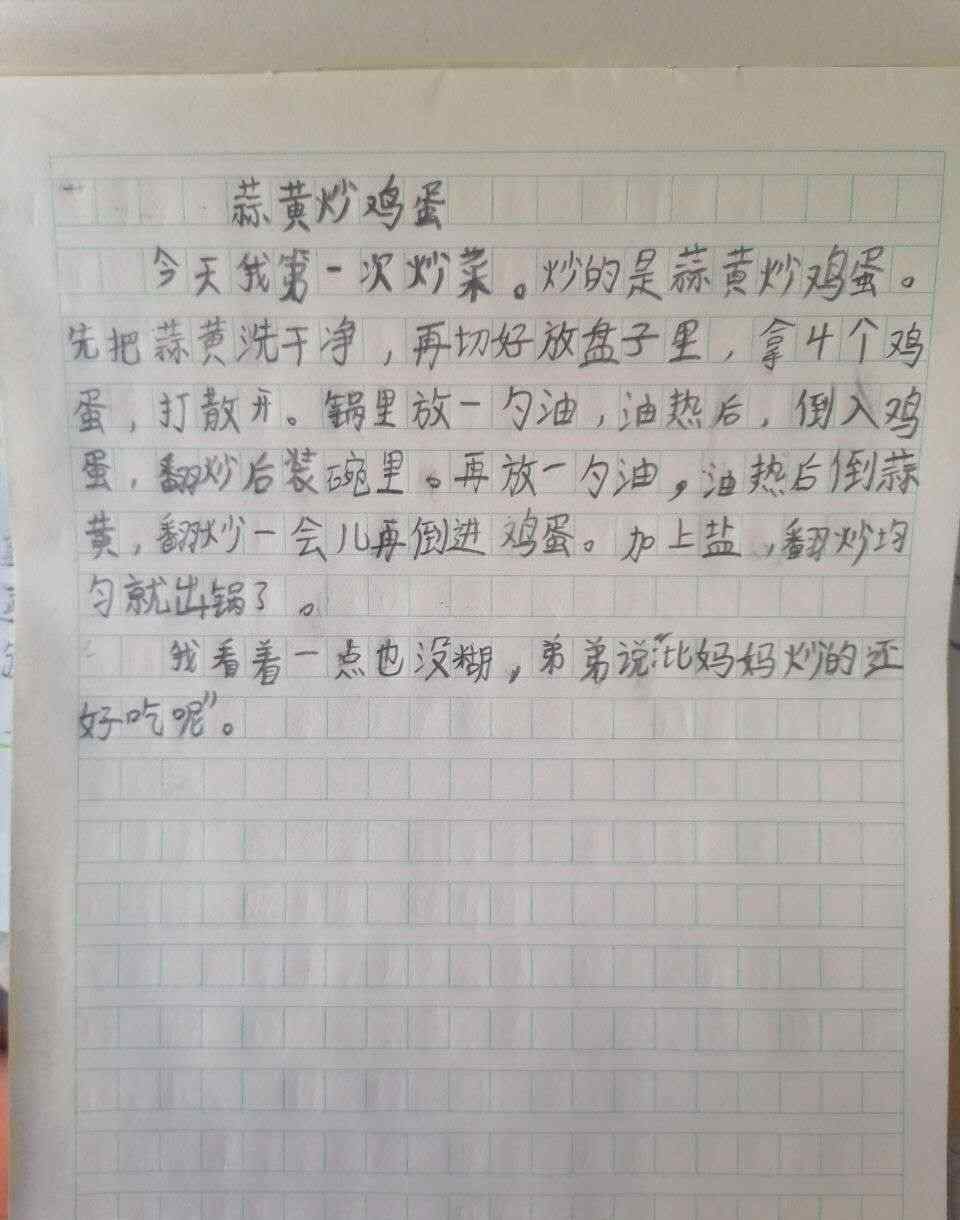 蒜黄炒鸡蛋
今天我第一次炒菜。炒的是蒜黄炒鸡蛋。
先把蒜黄洗干净,再切好放盘子里,拿4个鸡
蛋,打散开。锅里放一勺油,油热后,倒入鸡
蛋,翻炒后装碗里。再放一勺油,油热后倒蒜
黄,翻炒一会儿再倒进鸡蛋。加上盐,翻炒均
匀就出锅了。
我看着一点也没糊,弟弟说“比妈妈炒的还
好吃呢”。